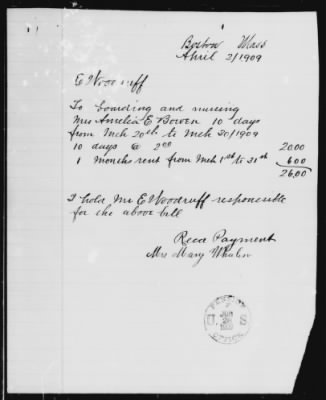 Boston Mass
April 2/1909
E Woodruff
To boarding and nursing
Mrs Amelia E Bowen 10 days
from Mch 20th to Mch 30/1909
10 days @ 2.00 20.00
1 months rent from Mch 1st to 31st 6.00
26.00
I hold Mr E Woodruff responsible
for the above bill
Recd Payment
Mrs Mary Whalen
PENSION
U S
OFFICE